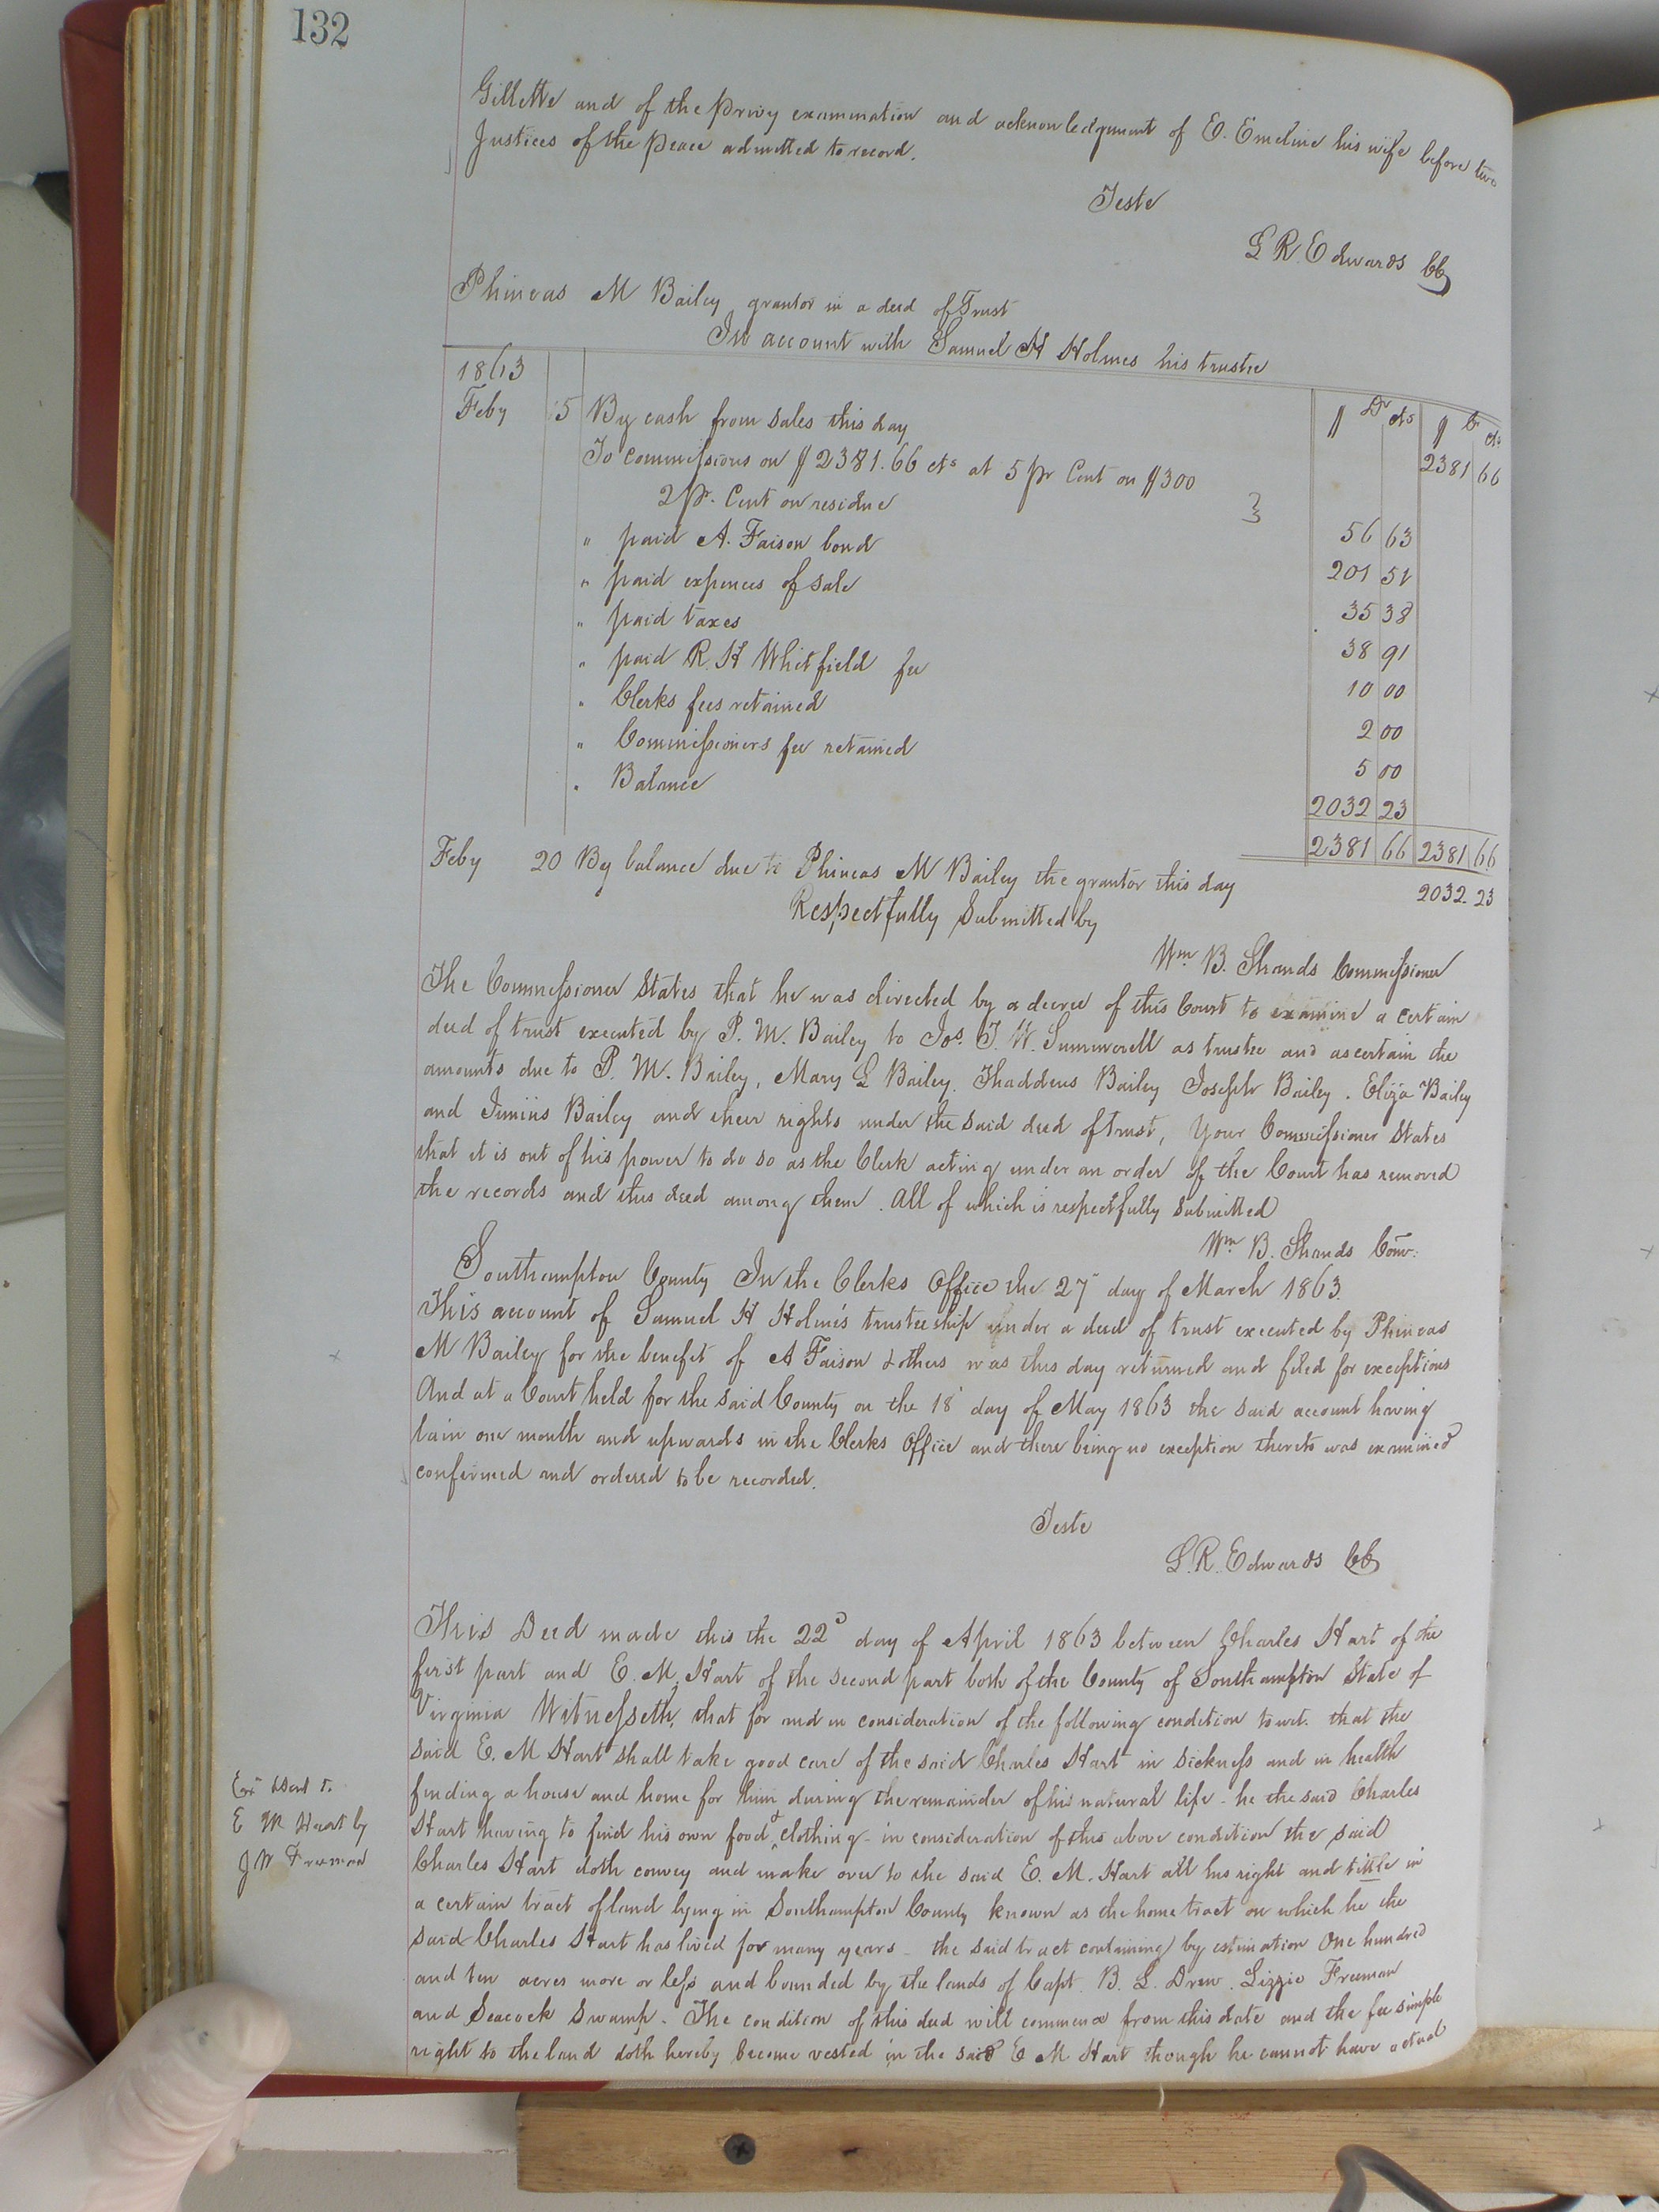 132
Gillette and of the Privy examination and acknowledgment of E. Emeline his wife before two
Justices of the Peace admitted to record.
Teste
L R. Edwards CC
Phineas M Bailey grantor in a deed of Trust
In account with Samuel H Holmes his trustee
1863 $ Dr cts $ Cr cts
Feby 5 By cash from sales this day 2381 66
To commissions on $2381.66 cts at 5 pr Cent on $300
2 pr. Cent on residue } 56 63
" paid A. Faison bond 201 51
" paid expences of sale 35 38
" paid taxes 38 91
" paid R. H Whitfield fee 10 00
" Clerks fees retained 2 00
" Commissioners fee retained 5 00
" Balance 2032 23
2381 66 2381 66
Feby 20 By balance due to Phineas M Bailey the grantor this day 2032.23
Respectfully Submitted by
Wm B. Shands Commissioner
The Commissioner States that he was directed by a decree of this Court to examine a certain
deed of trust executed by P. M. Bailey to Jos. T. W. Summerell as trustee and ascertain the
amounts due to P. M. Bailey, Mary L Bailey. Thaddeus Bailey Joseph Bailey. Eliza Bailey
and Junius Bailey and their rights under the said deed of trust, Your Commissioner States
that it is out of his power to do so as the Clerk acting under an order of the Court has removed
the records and this deed among them. All of which is respectfully Submitted
Wm B. Shands Com:
Southampton County In the Clerks Office the 27 day of March 1863.
This account of Samuel H Holmes trusteeship under a deed of trust executed by Phineas
M Bailey for the benefit of A Faison & others was this day returned and filed for exceptions
And at a Court held for the said County on the 18 day of May 1863 the said account having
lain one month and upwards in the Clerks Office and there being no exception thereto was examined
confirmed and ordered to be recorded.
Teste
L. R. Edwards CC
This Deed made this the 22d day of April 1863 between Charles Hart of the
first part and E. M. Hart of the second part both of the County of Southampton State of
Virginia Witnesseth, that for and in consideration of the following condition towit. that the
said E. M Hart shall take good care of the said Charles Hart in sickness and in health
finding a house and home for him during the remainder of his natural life - he the said Charles
Hart having to find his own food & clothing - in consideration of this above condition the said
Charles Hart doth convey and make over to the said E. M. Hart all his right and tittle in
a certain tract of land lying in Southampton County known as the home tract on which he the
said Charles Hart has lived for many years - the said tract containing by estimation One hundred
and ten acres more or less and bounded by the lands of Capt. B. L. Drew. Lizzie Freeman
and Seacock Swamp. The condition of this deed will commence from this date and the fee simple
right to the land doth hereby become vested in the said E M Hart though he cannot have actual
E M Hart by
J W Freeman